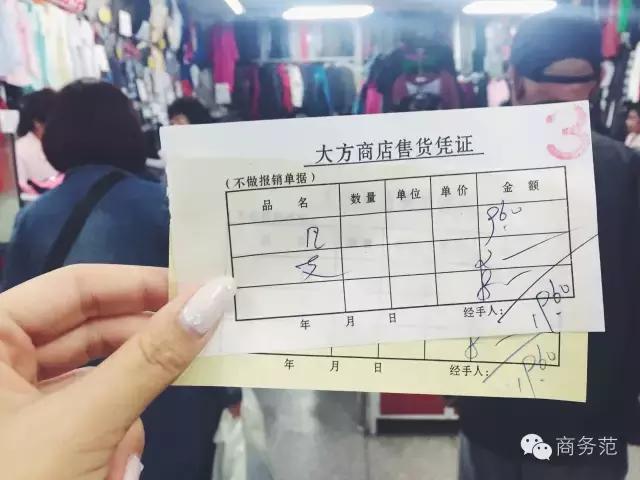 3
大方商店售货凭证
(不做报销单据)
品 名 数量 单位 单价 金 额
几 960
支 2
8
年 月 日 经手人: 1960
8
年 月 日 经手人: 1960
商务范